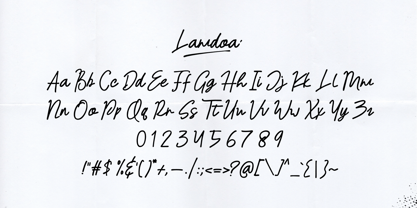 Lamdoa
Aa Bb Cc Dd Ee Ff Gg Hh Ii Jj Kk Ll Mm
Nn Oo Pp Qq Rr Ss Tt Uu Vv Ww Xx Yy Zz
0 1 2 3 4 5 6 7 8 9
!"#$%&'()*+,-./:;<=>?@[\]^_`{|}~